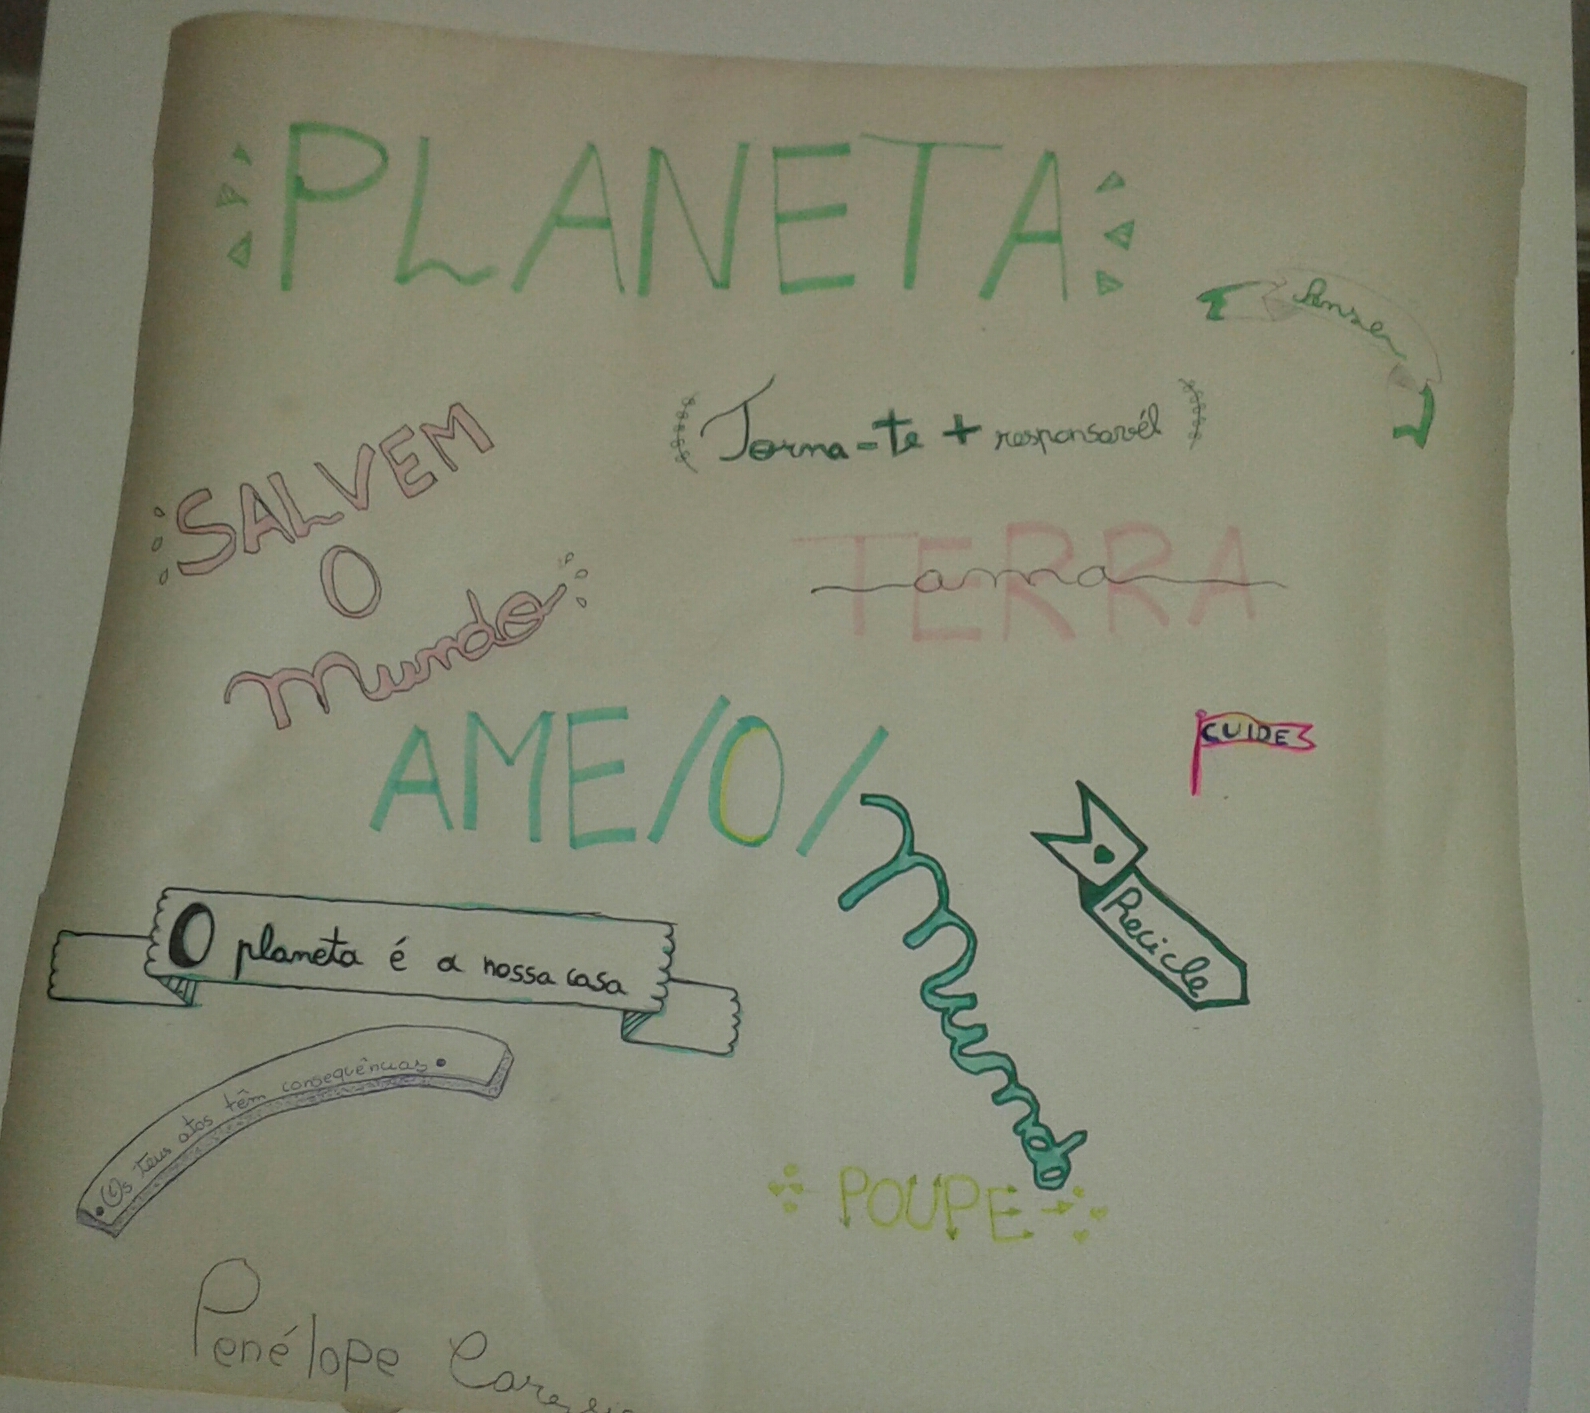 PLANETA
Pense
Torna-te + responsavél
SALVEM
O
Mundo
TERRA
ama
AME/O/
Mundo
CUIDE
Recicle
O planeta é a nossa casa
Os teus atos têm consequências
POUPE
Penélope